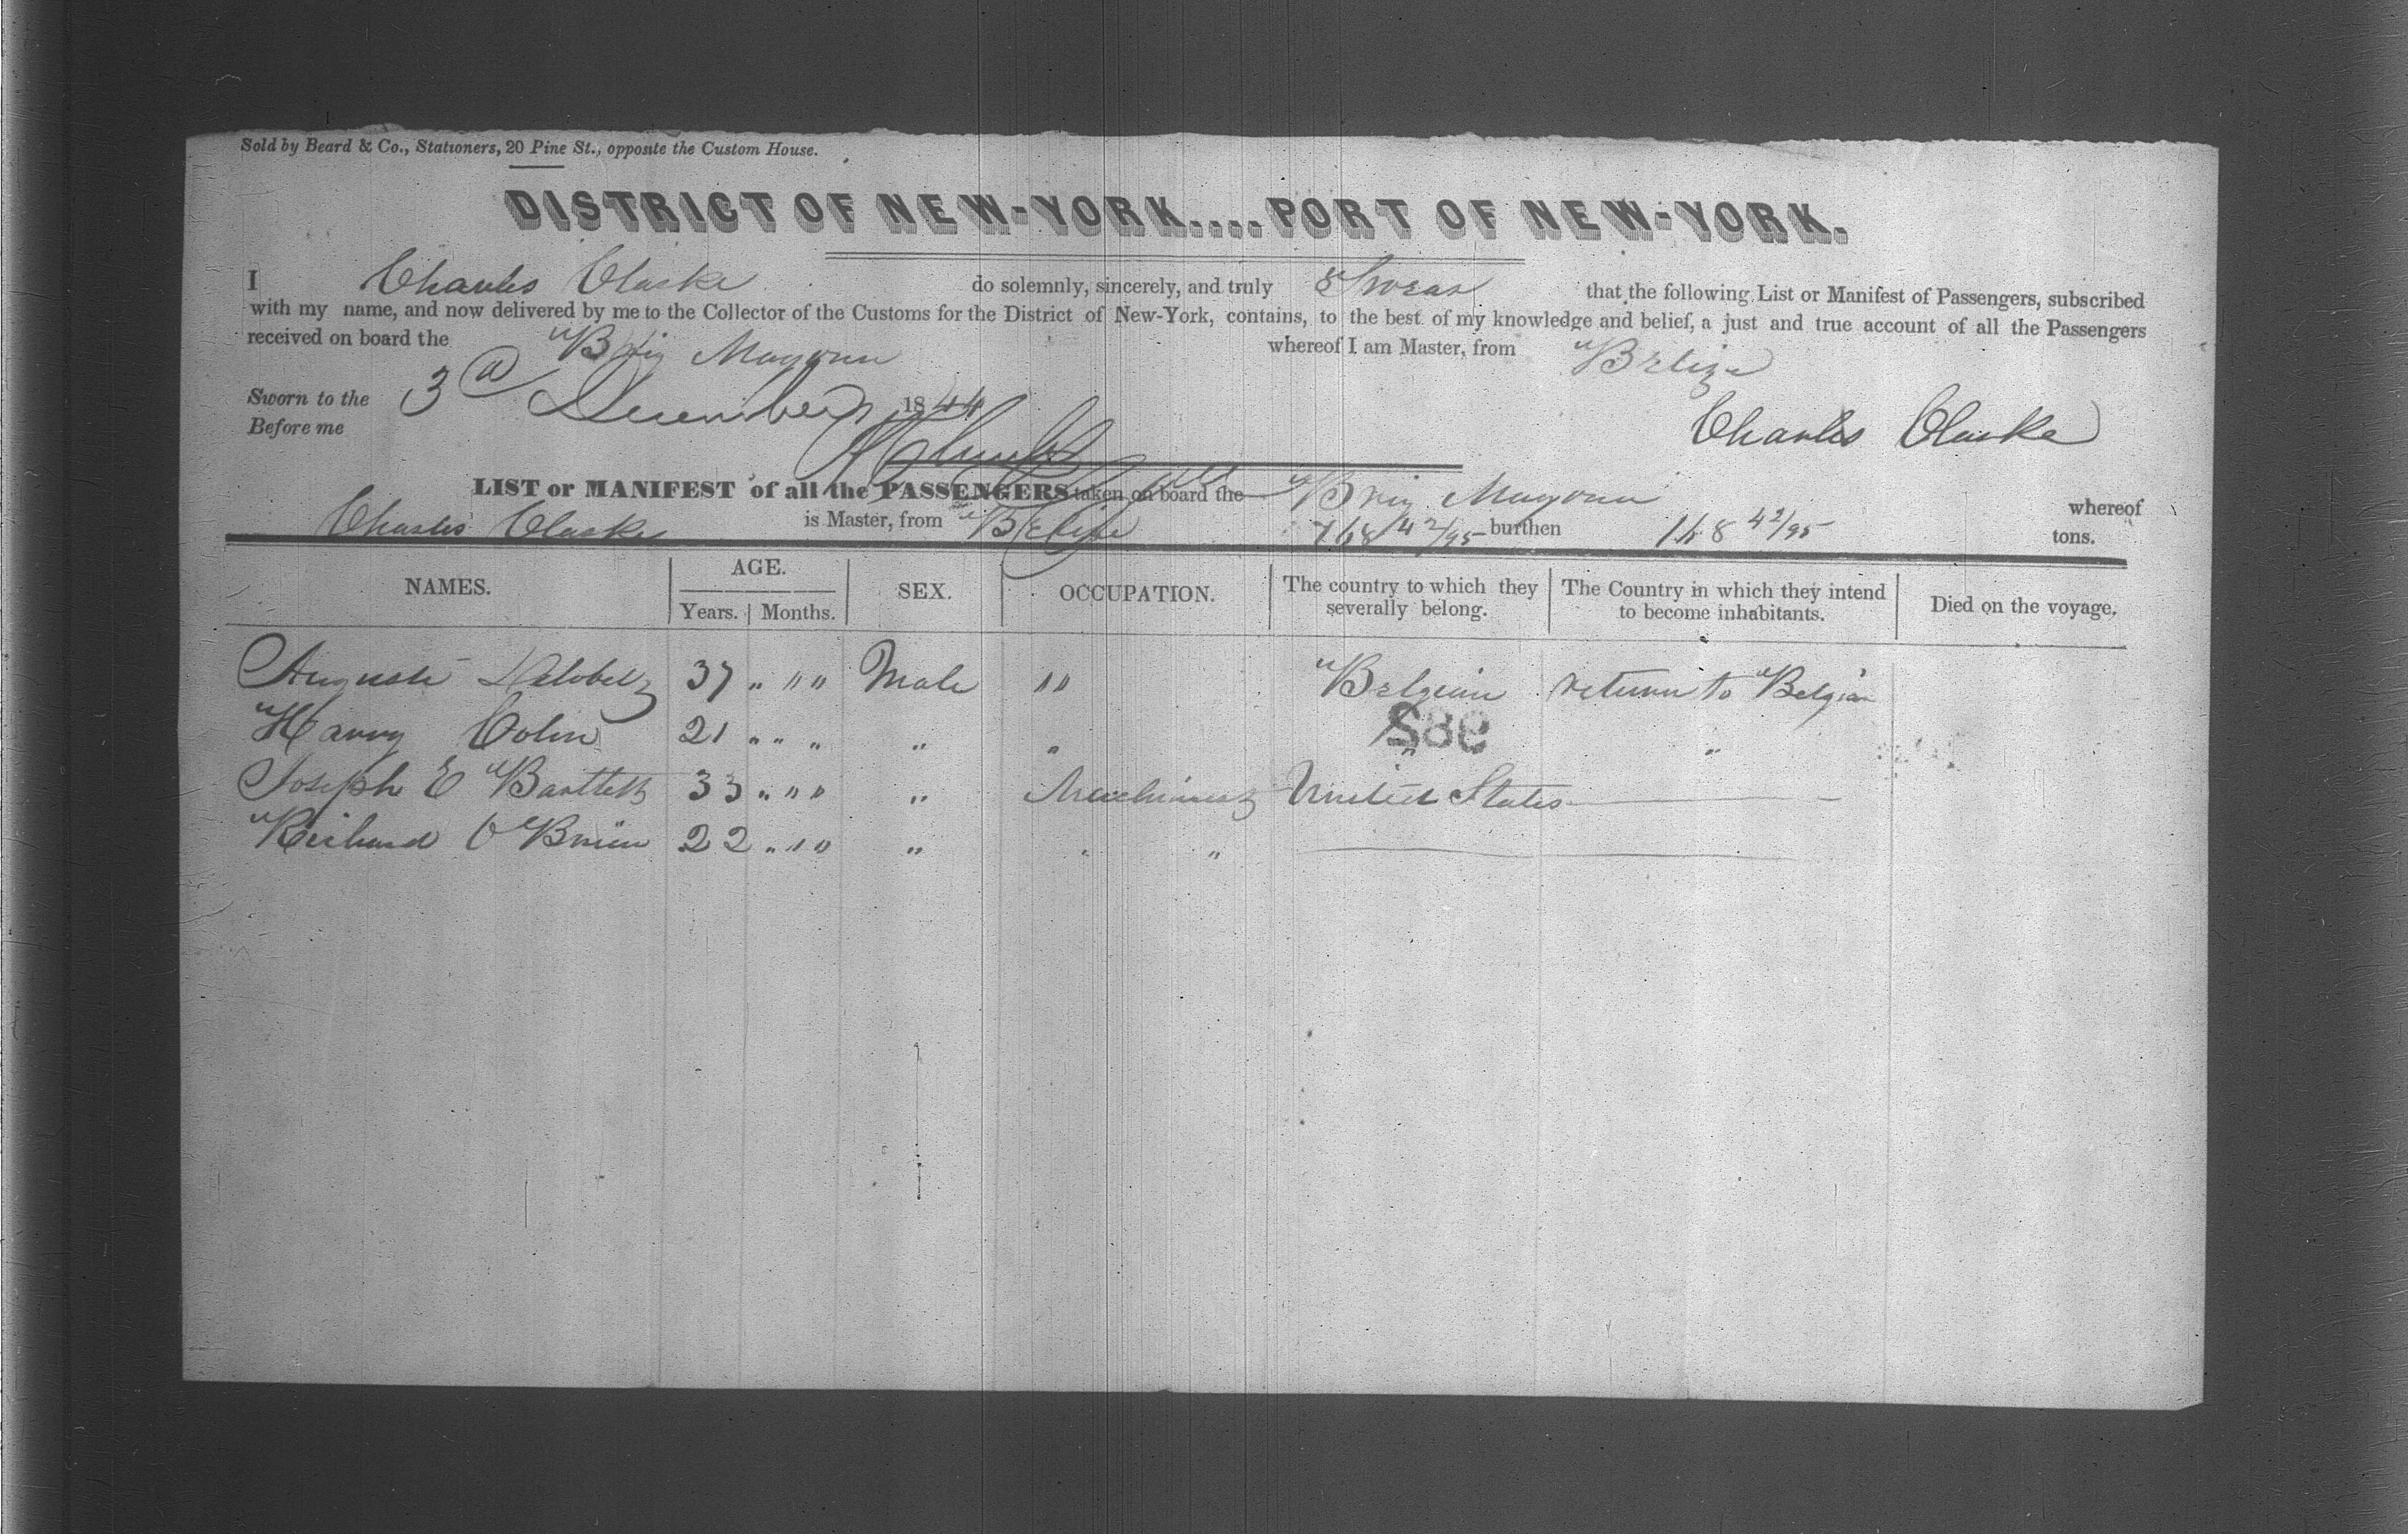 Sold by Beard & Co., Stationers, 20 Pine St., opposite the Custom House.
DISTRICT OF NEW-YORK....PORT OF NEW-YORK.
I Charles Clarke do solemnly, sincerely, and truly Swear that the following List or Manifest of Passengers, subscribed
with my name, and now delivered by me to the Collector of the Customs for the District of New-York, contains, to the best of my knowledge and belief, a just and true account of all the Passengers
received on board the Brig whereof I am Master, from Belize
Sworn to the 3d December 1844
Before me
Charles Clarke
LIST or MANIFEST of all the PASSENGERS taken on board the Brig whereof
Charles Clarke is Master, from Belize 168 42/95 burthen 168 42/95 tons.
NAMES. AGE. Years. Months. SEX. OCCUPATION. The country to which they severally belong. The Country in which they intend to become inhabitants. Died on the voyage.
Auguste 37 " " " Male " " Belgium return to Belgium
Colin 21 " " " " " " "
989
Joseph E Bartlett 33 " " " " United States
Richard O Brien 22 " " " " "